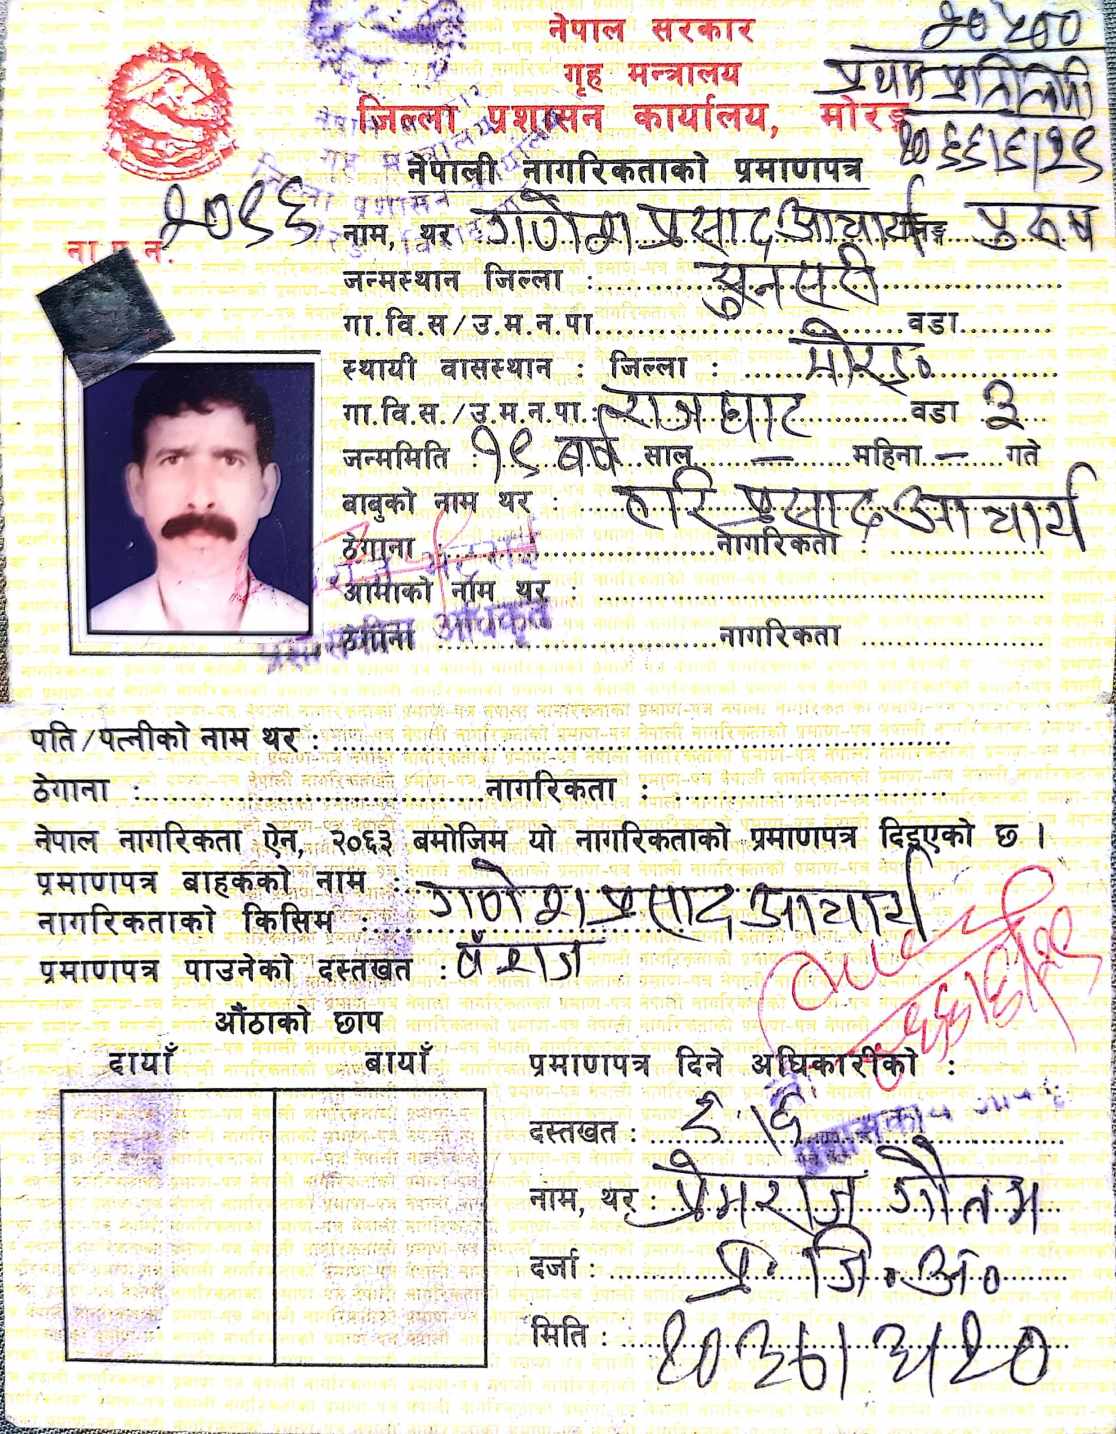 नेपाल सरकार
गृह मन्त्रालय
जिल्ला प्रशासन कार्यालय, मोरङ
प्रथम प्रतिलिपी
२०६६।६।२९
नेपाली नागरिकताको प्रमाणपत्र
ना.प्र.नं.
नाम, थर गणेश प्रसाद आचार्य लिङ्ग पुरूष
जन्मस्थान जिल्ला : सुनसरी
गा.वि.स/उ.म.न.पा. वडा
स्थायी वासस्थान : जिल्ला : मोरङ
गा.वि.स./उ.म.न.पा.: राजघाट वडा ३
जन्ममिति : १९ वर्ष साल — महिना — गते
बाबुको नाम थर : हरि प्रसाद आचार्य
ठेगाना : नागरिकता :
आमाको नाम थर :
ठेगाना नागरिकता
प्रशासकीय अधिकृत
पति/पत्नीको नाम थर :
ठेगाना : नागरिकता :
नेपाल नागरिकता ऐन, २०६३ बमोजिम यो नागरिकताको प्रमाणपत्र दिइएको छ ।
प्रमाणपत्र बाहकको नाम : गणेश प्रसाद आचार्य
नागरिकताको किसिम :
प्रमाणपत्र पाउनेको दस्तखत : बँशज
औंठाको छाप
दायाँ बायाँ
प्रमाणपत्र दिने अधिकारीको :
दस्तखत :
नाम, थर : प्रेमराज गौतम
दर्जा : प्र.जि.अ.
मिति : २०३७।३।२०